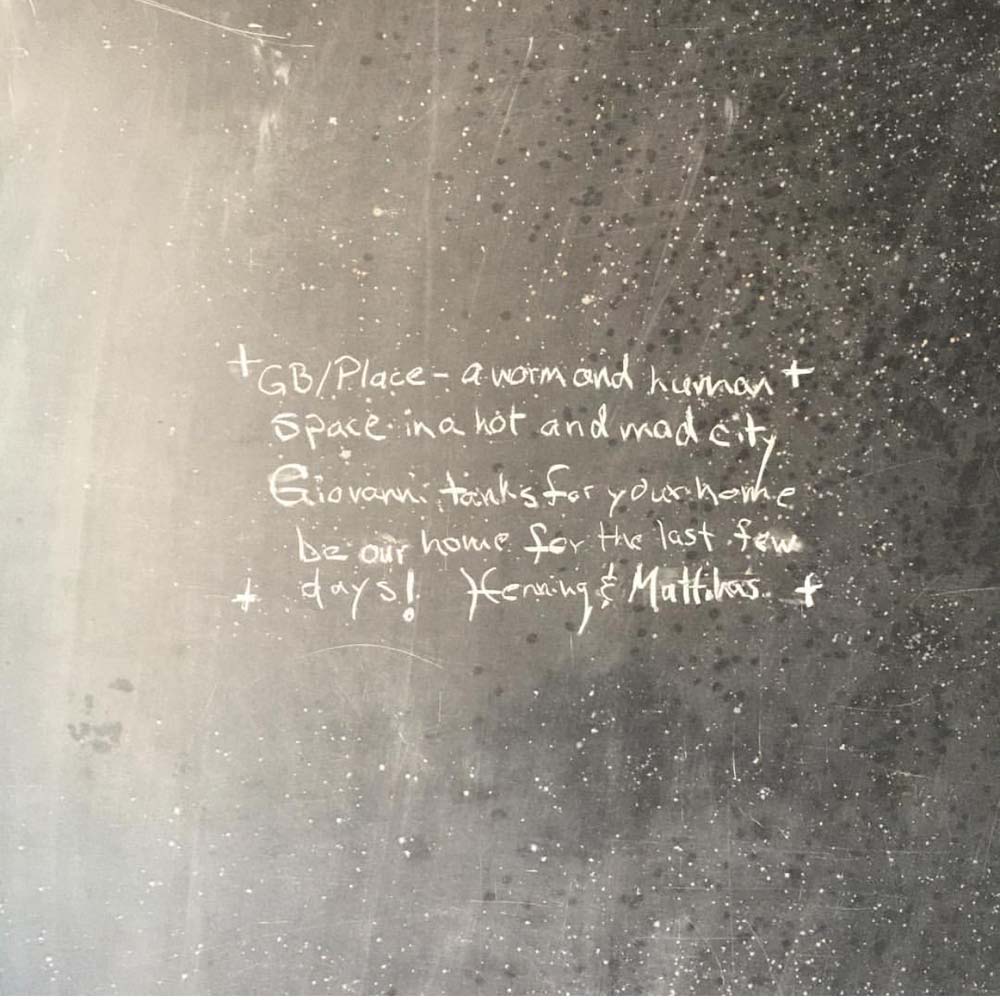 + GB/Place - a worm and human +
space in a hot and mad city
Giovanni tanks for your home
be our home for the last few
+ days! Henning & Matthias +